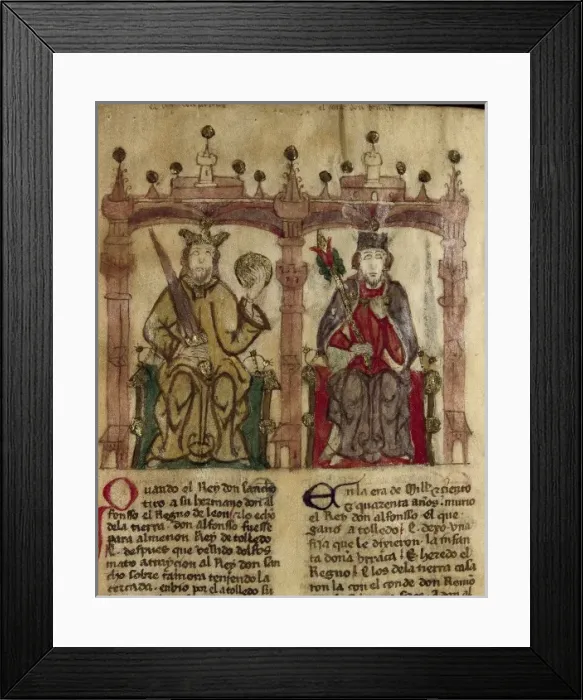 Quando el Rey don sancho
tiro a su hermano don al
fonsso el Regno de leon τ lo echo
dela tierra . don alfonsso fuesse
para almenon Rey de tolledo
τ despues que vellido dolfos
mato a traycion al Rey don san
cho sobre çamora teniendo la
cercada . enbio por el a tolledo su
En la era de Mill τ ciento
τ quarenta años . murio
el Rey don alfonsso el que
gano a tolledo τ dexo una
fija que le dixieron la infan
ta doña hurraca τ heredo el
Regno τ los dela tierra casa
ron la con el conde don Remo